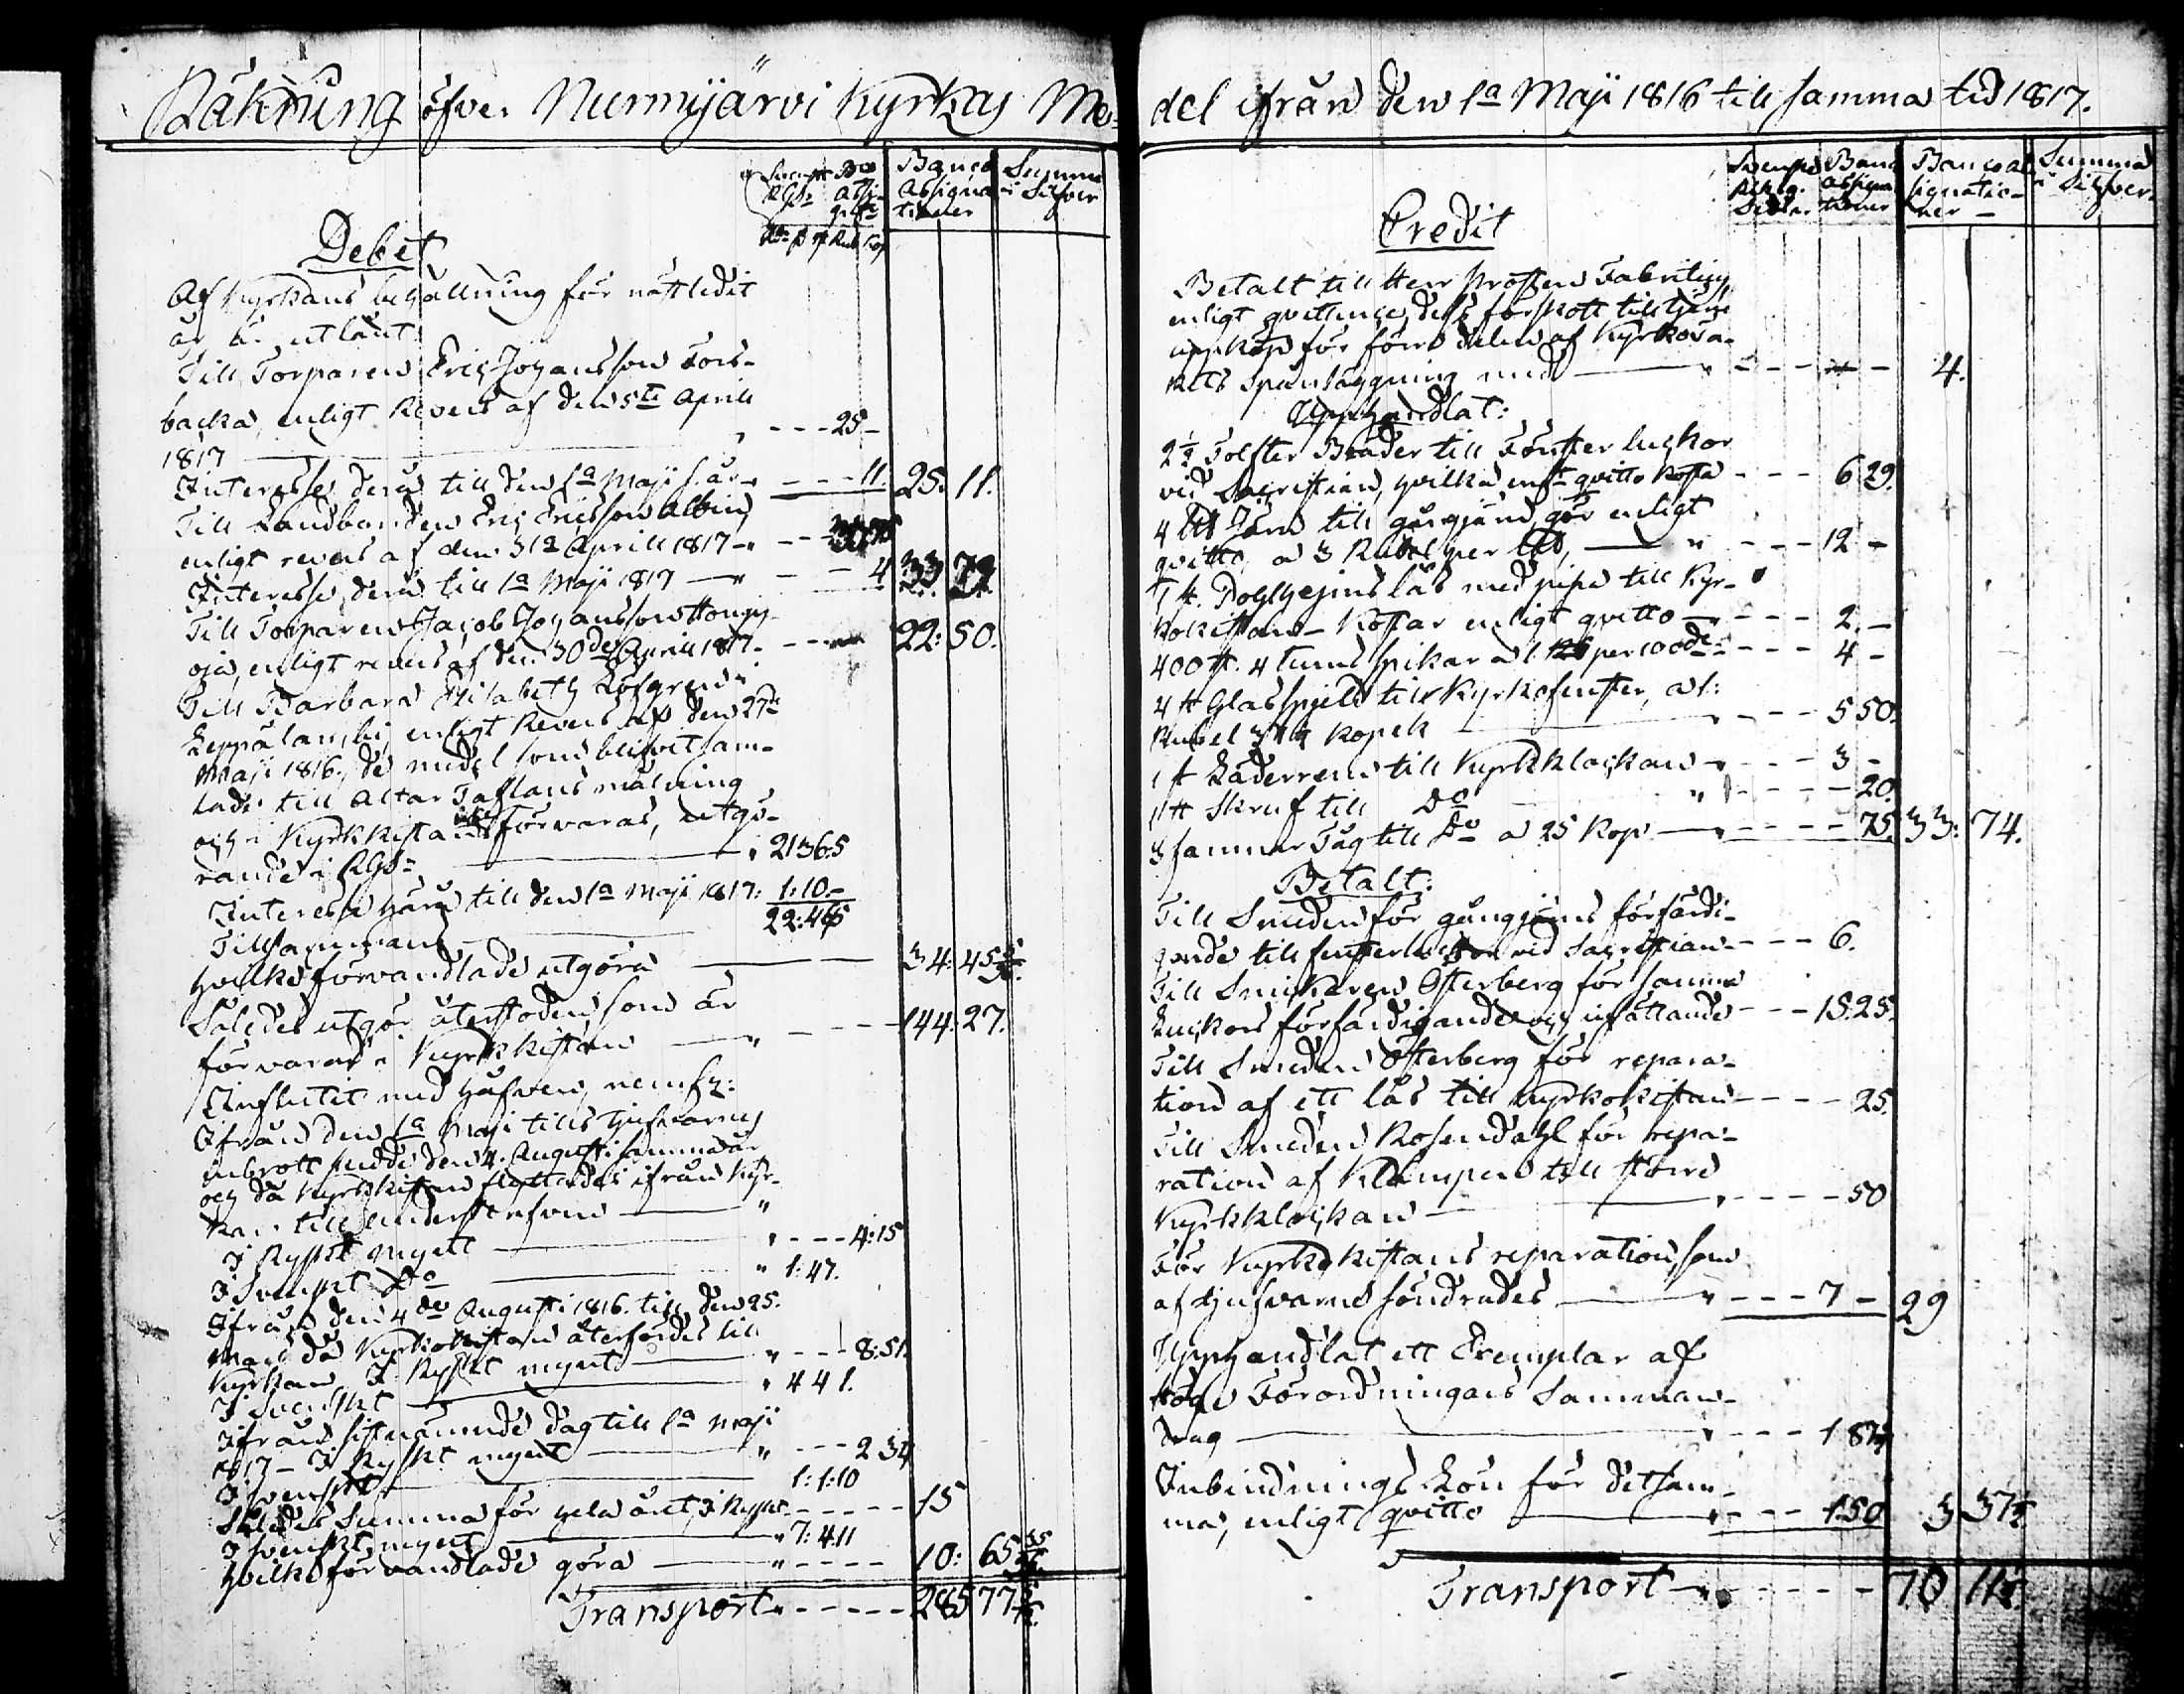 Räkning öfver Nurmijärvi Kyrkas Me-
Banco Assignationer
Summa i Silfver
Debet
Af Kyrkans behållning för nästledit
år är utlånt
Till Torparen Eric Johansson Fors-
backa, enligt Revers af den 5te Aprill
1817 - - - 25 -
Interesse derå till den 1a Maji s. år - - - 11. 25. 11.
Till Landbonden Eric Ericsson Albin
enligt revers af den 31a Aprill 1817 - - -
Interesse derå till 1a Maji 1817 - - 4 33
Till Torparen Jacob Johansson
oja, enligt revers af den 30de Aprill 1817 - - - 22: 50.
Till Barbara Elisabeth Löfgren i
Leppälambi, enligt Revers af den 27de
Maji 1816, de medel som blifvit sam-
lade till Altar Taflans målning
och i Kyrkkistan förvaras, utgö-
rande i RGs 21365
Interesse härå till den 1a Maji 1817: 1:10.-
Tillsammans 22:46
hvilka förvandlade utgöra 34: 45
Således utgör återstoden som är
förvarad i Kyrkkistan - - - 144: 27.
Influtit med Håfven, nemt:
Ifrån den 1a Maji tills tjufvarnes
inbrott skedde den 4. Augusti samma år
och då Kyrkkistan flyttades ifrån Kyr-
kan till
I Ryskt mynt - - - 4:15
I Svenskt Do 1:47.
Ifrån den 4de Augusti 1816. till den 25.
Maji då Kyrkokistan återfördes till
Kyrkan I Ryskt mynt - - - 8:51.
I Svenskt 441.
Ifrån sistnämnde dag till 1a Maji
1817 - I Ryskt mynt - - - 2 34
I Svenskt 1:1:10
Således Summa för hela året, i Ryskt - - - - 15
I Svenskt mynt 7:4.11
Hvilka förvandlade göra - - - - 10: 65
Transport - - - - - 285 77
del ifrån den 1a Maji 1816 till samma tid 1817.
Banco Assignationer
Banco Assignationer -
Summa i Silfver
Credit
Betalt till Herr Prosten Fabritius,
enligt qvittence, dess förskott till tjäru
uppköp för förra delen af Kyrkota-
kets Spånläggning med - - - - 4.
Upphandlat:
2½ Tolfter Bräder till Fönster luckor
vid Sacristian, hvilka enligt qvitto kosta - - - 6 29.
4 LH Järn till gångjärn, gör enligt
qvitto, a 3 Rubel per LH, - - - 12 -
1 st. Poghejms lås med pipa till Kyr-
kokistan - Kostar enligt qvitto - - - 2. -
400 st. 4 tums spikar a 1. per 100de - - - 4 -
4 st Glas spjeld till Kyrkofenster, a 1:
Rubel 37½ Kopek - - - 5 50.
1 st Läderrem till Kyrkklockan - - - 3 -
1 st Skruf till Do - - - 20.
3 famnar Tåg till Do a 25 Kop - - - - 75. 33: 74.
Betalt:
Till Smeden för gångjerns förfärdi-
gande till fensterluckor vid Sacristian - - - 6.
Till Snickaren Österberg för samma
Luckors förfärdigande och insättande - - - 15:25.
Till Smeden Österberg för repara-
tion af ett lås till Kyrkokistan - - - - 25.
Till Smeden Rosendahl för repa-
ration af Klämpen till Störe
Kyrkklockan - - - - 50
För Kyrkokistans reparation, som
af tjufvarne söndrades - - - 7 - 29
Upphandlat ett Exemplar af
Höga Förordningars Samman-
drag - - - 1 87½
Inbindnings Lön för detsam-
ma, enligt qvitto - - - 1.50 3 37½
Transport - - - - - 70 11½.